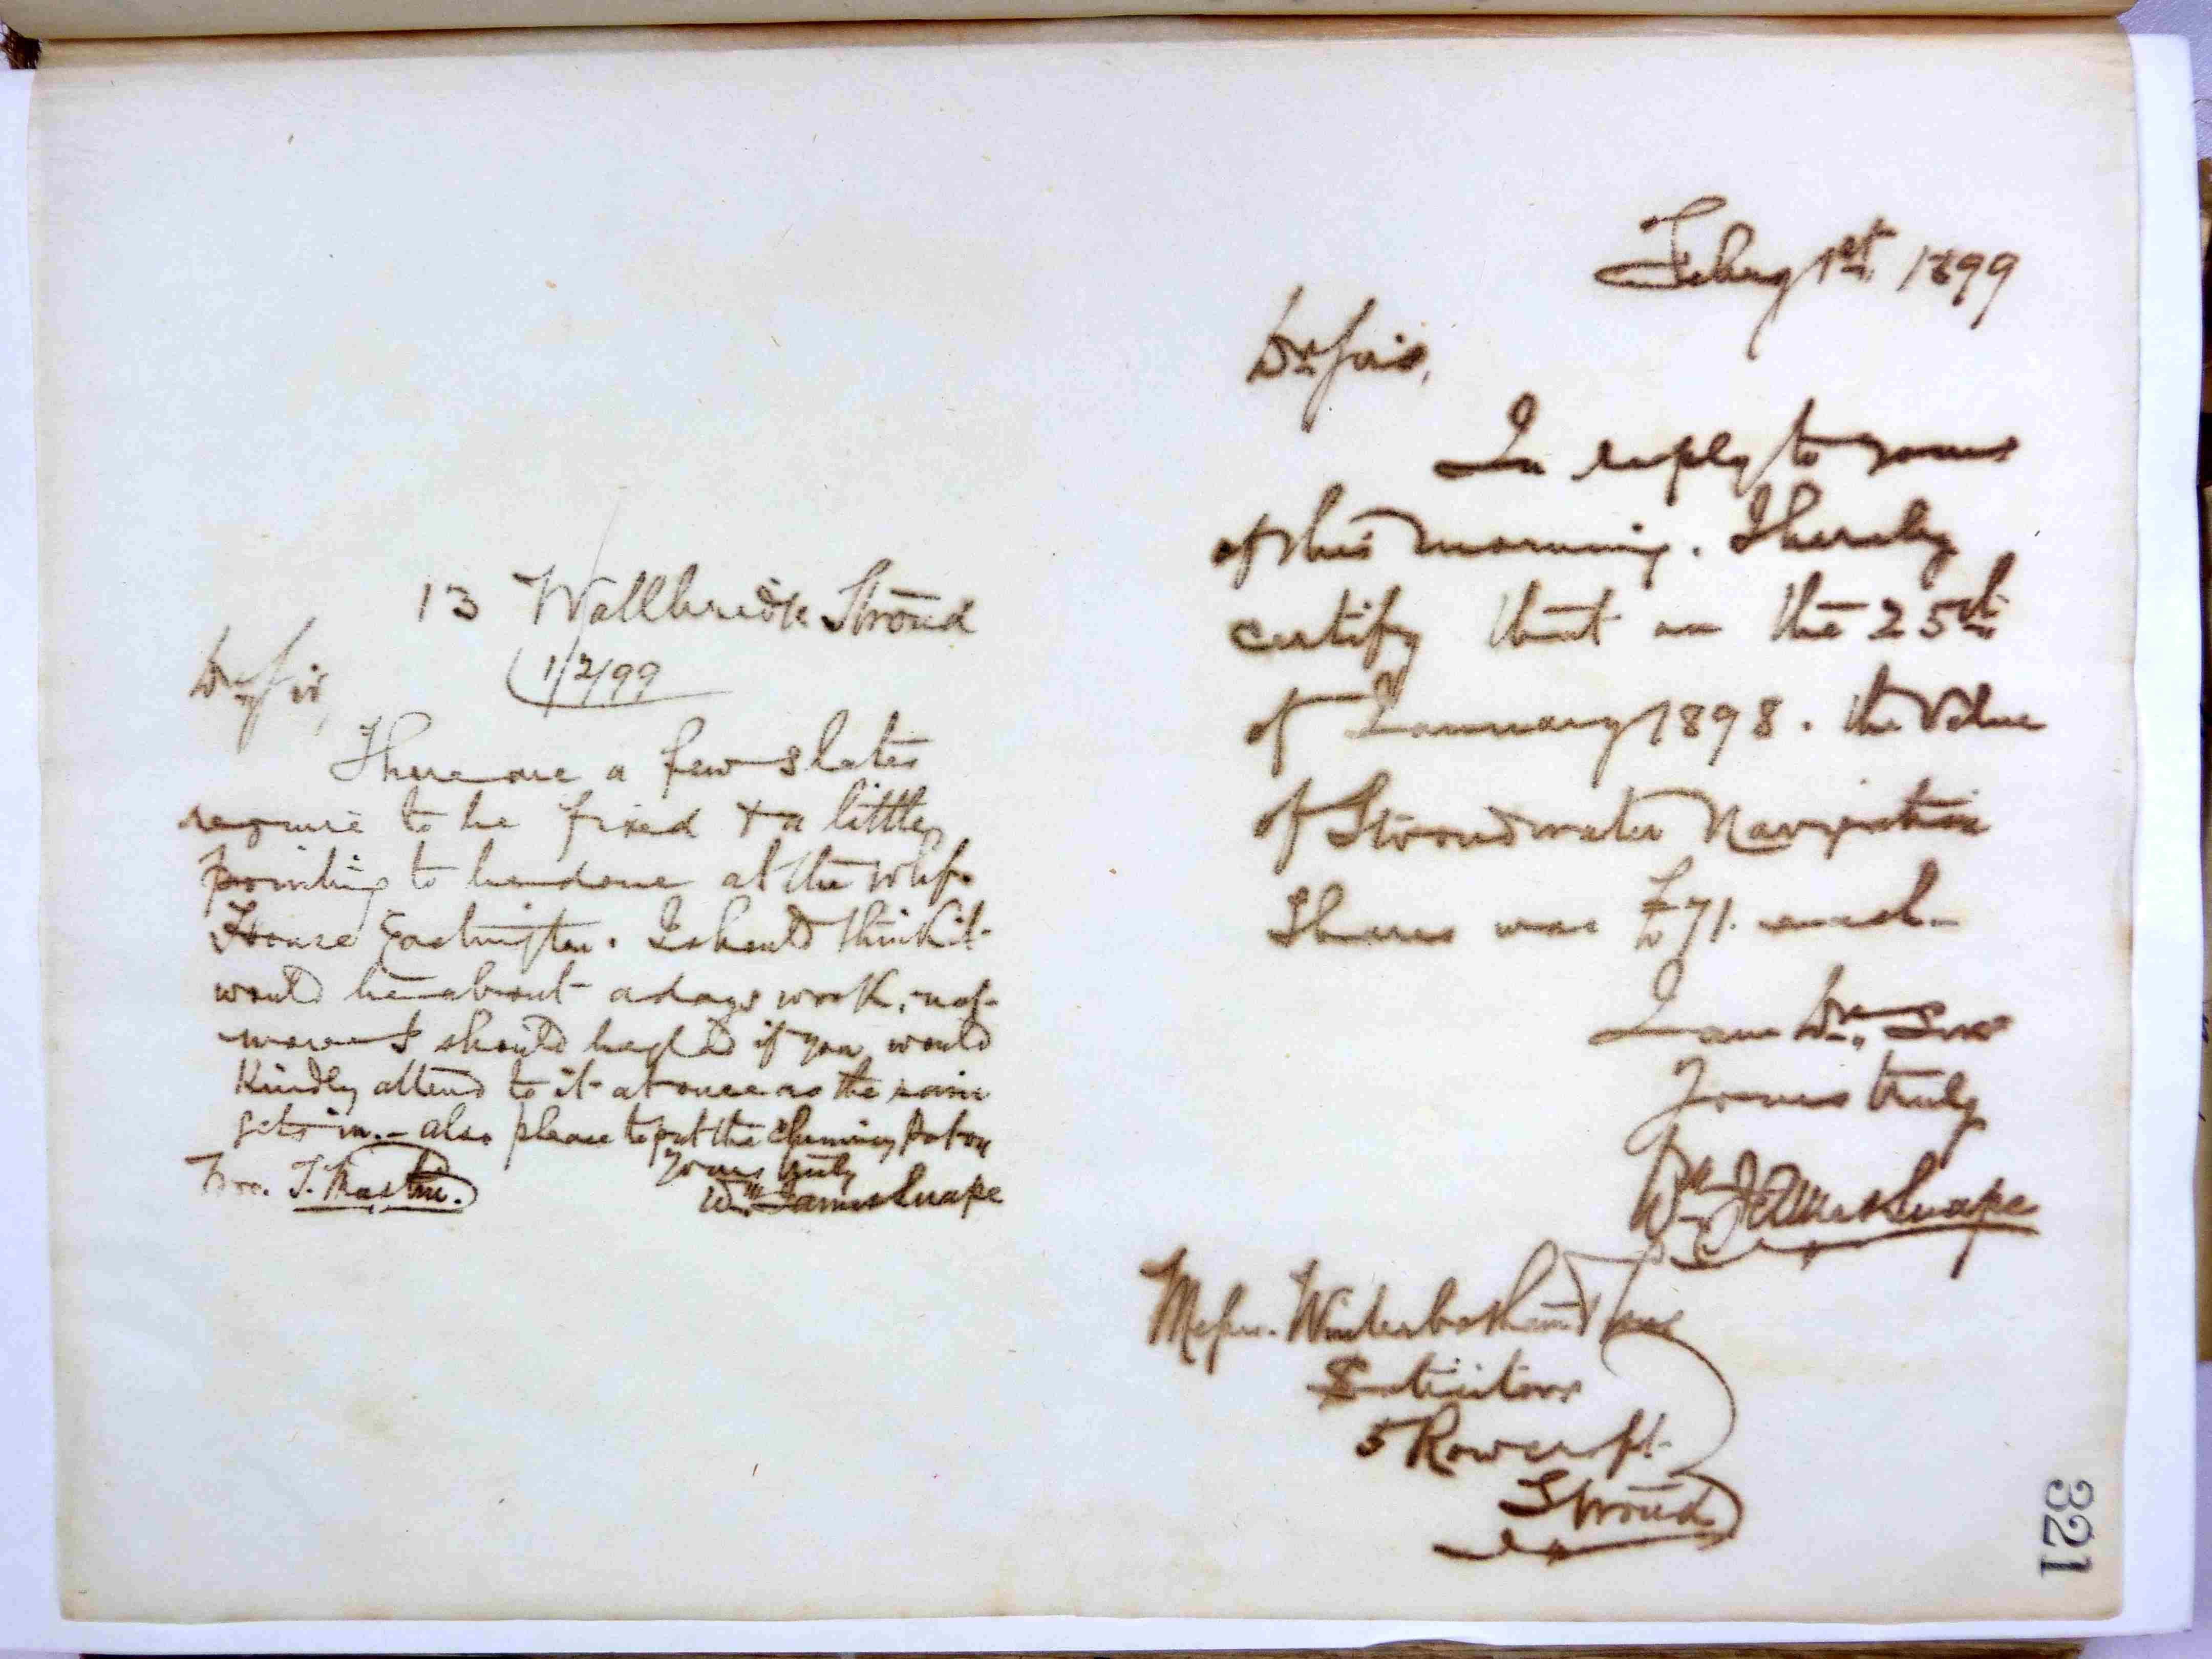 13 Wallbridge Stroud
1/2/99
Dr Sir,
There are a few slates
require to be fixed & a little
pointing to be done at the Whf.
House Eastington. I should think it
would be about a days work, not
more I should be glad if you would
Kindly attend to it at once as the rain
gets in. - also please to put the Chimney Pot on
Yours truly
Wm. James Snape
T.
Feby 1st 1899
Dr Sirs,
In reply to yours
of this morning. I hereby
certify that on the 25th
of January 1898. the Value
of Stroudwater Navigation
Shares was £71. each.
I am Dr. Sirs
Yours truly
Wm James Snape
Messrs. Winterbotham & Sons
Solicitors
5 Rowcroft
Stroud
321